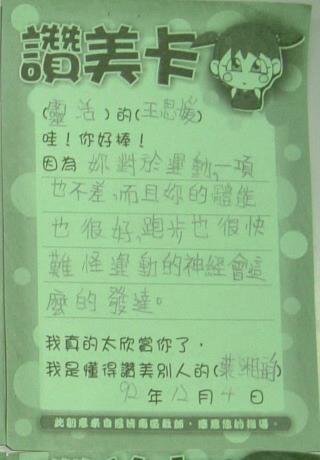 讚美卡
(靈活)的(王思媛)
哇！你好棒！
因為 妳對於運動一項
也不差，而且妳的體能
也很好，跑步也很快
難怪運動的神經會這
麼的發達。
我真的太欣賞你了，
我是懂得讚美別人的(葉湘)
92年12月4日